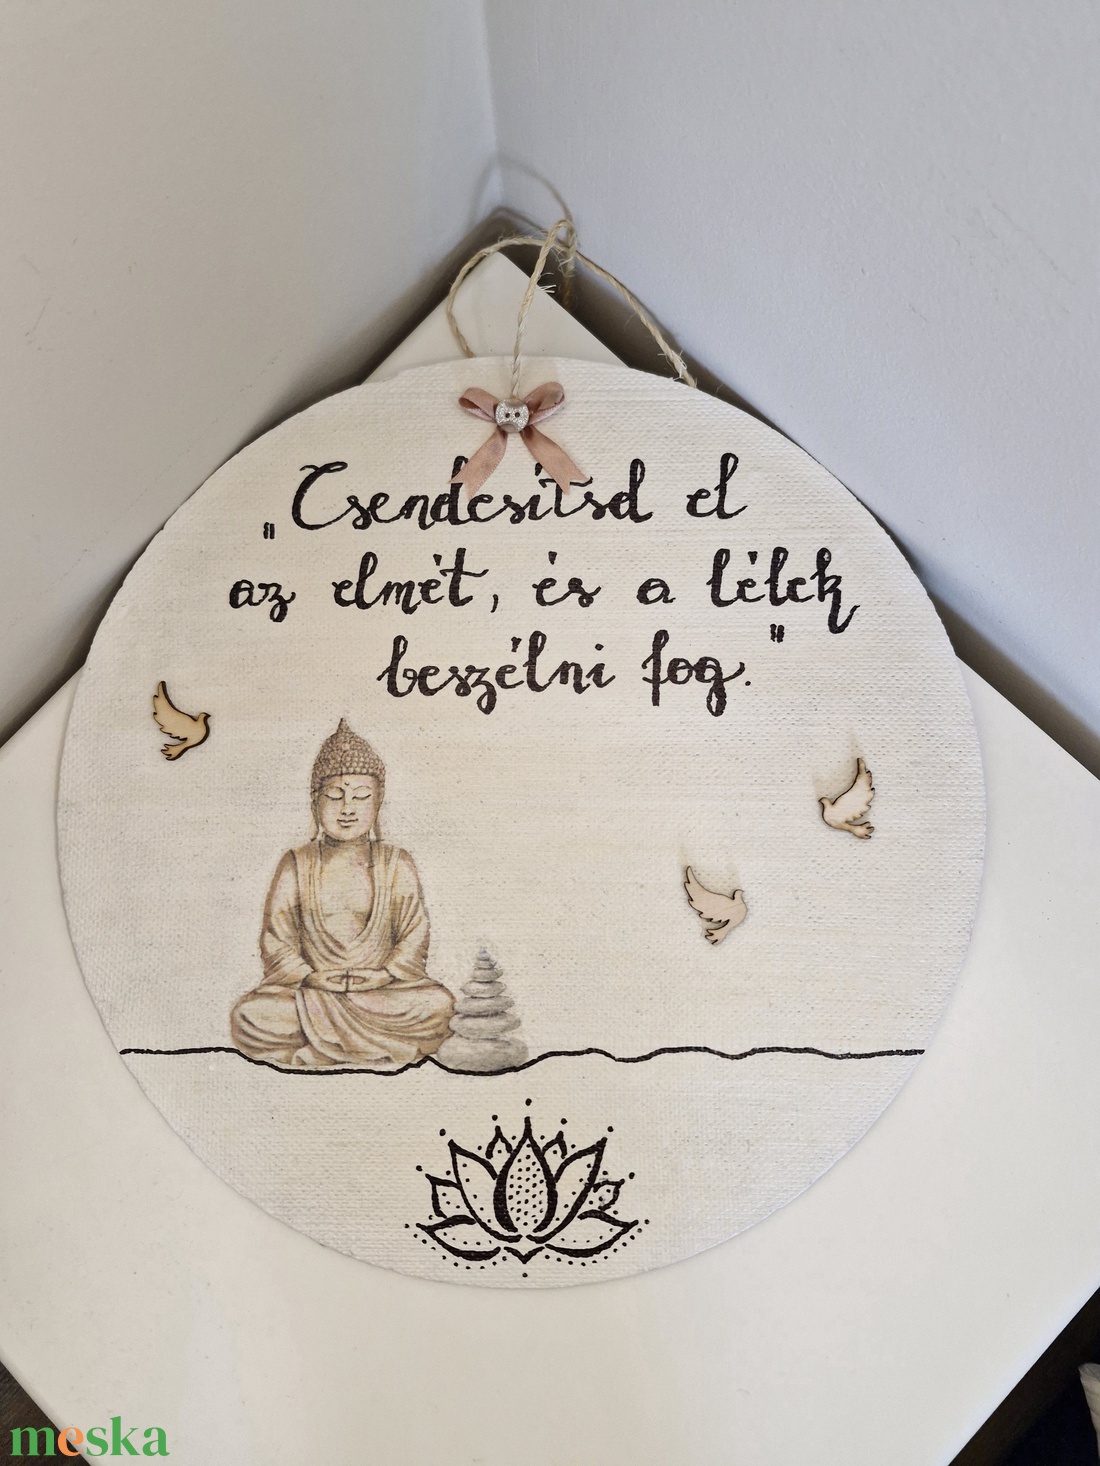 „Csendesítsd el
az elmét, és a lélek
beszélni fog."
meska